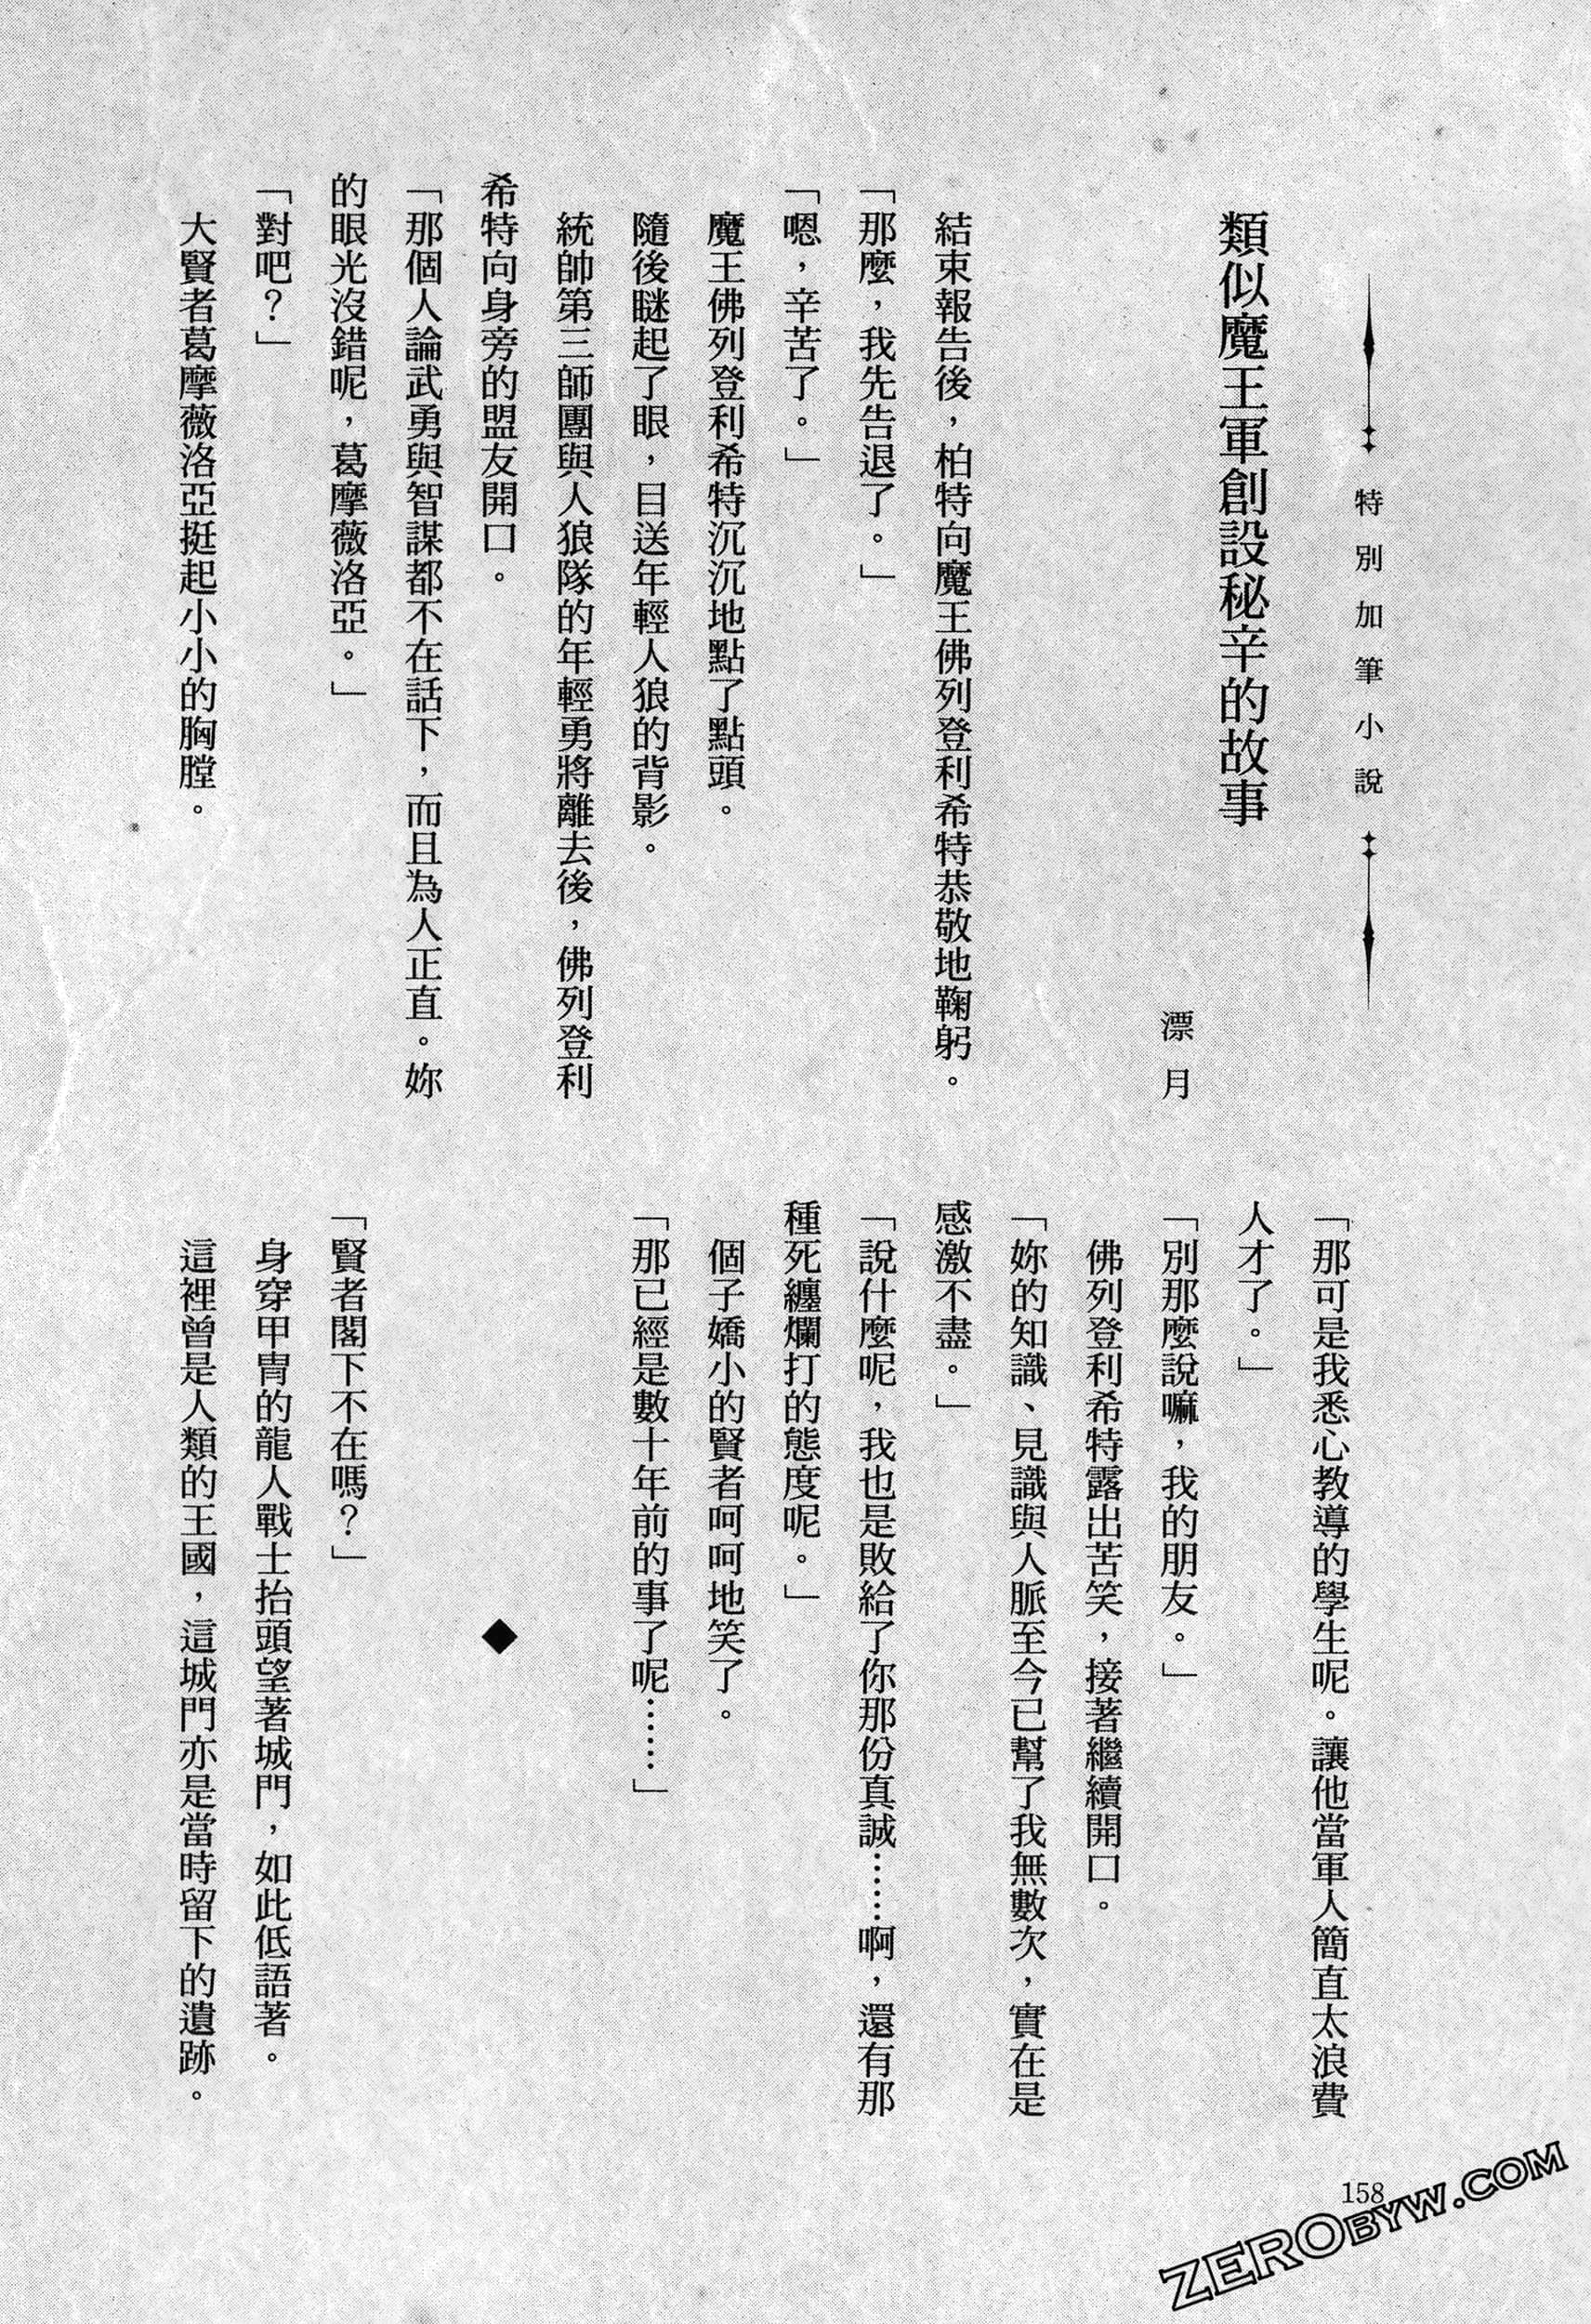 特別加筆小說
類似魔王軍創設秘辛的故事
漂月
結束報告後，柏特向魔王佛列登利希特恭敬地鞠躬。
「那麼，我先告退了。」
「嗯，辛苦了。」
魔王佛列登利希特沉沉地點了點頭。
隨後瞇起了眼，目送年輕人狼的背影。
統帥第三師團與人狼隊的年輕勇將離去後，佛列登利
希特向身旁的盟友開口。
「那個人論武勇與智謀都不在話下，而且為人正直。妳
的眼光沒錯呢，葛摩薇洛亞。」
「對吧？」
大賢者葛摩薇洛亞挺起小小的胸膛。
「那可是我悉心教導的學生呢。讓他當軍人簡直太浪費
人才了。」
「別那麼說嘛，我的朋友。」
佛列登利希特露出苦笑，接著繼續開口。
「妳的知識、見識與人脈至今已幫了我無數次，實在是
感激不盡。」
「說什麼呢，我也是敗給了你那份真誠……啊，還有那
種死纏爛打的態度呢。」
個子嬌小的賢者呵呵地笑了。
「那已經是數十年前的事了呢……」
◆
「賢者閣下不在嗎？」
身穿甲冑的龍人戰士抬頭望著城門，如此低語著。
這裡曾是人類的王國，這城門亦是當時留下的遺跡。
158
ZEROBYW.COM